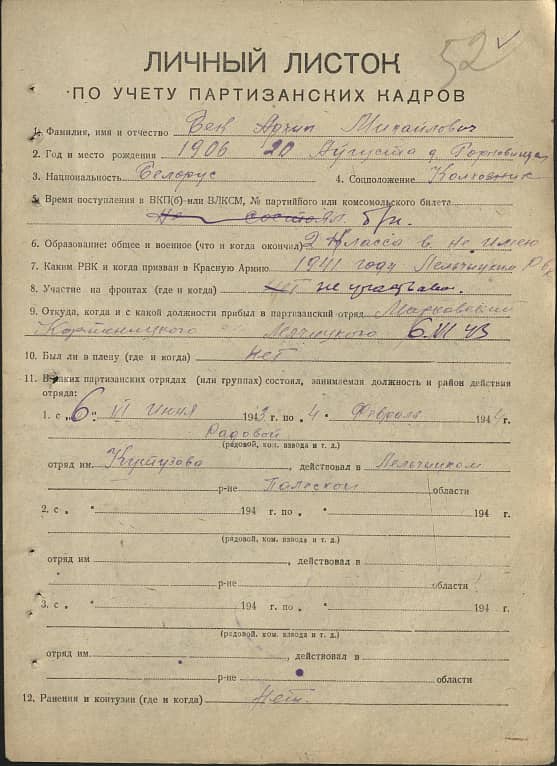 52
ЛИЧНЫЙ ЛИСТОК
ПО УЧЕТУ ПАРТИЗАНСКИХ КАДРОВ
1. Фамилия, имя и отчество Бек Архип Михайлович
2. Год и место рождения 1906 20 Августа д.
3. Национальность Белорус 4. Соцположение Колховник
5. Время поступления в ВКП(б) или ВЛКСМ, № партийного или комсомольского билета
Не состоял б/п.
6. Образование: общее и военное (что и когда окончил) 2 класса в. не имею
7. Каким РВК и когда призван в Красную Армию 1941 году Лельчицким
8. Участие на фронтах (где и когда) нет не участвовал.
9. Откуда, когда и с какой должности прибыл в партизанский отряд
6.VI 43
10. Был ли в плену (где и когда) Нет
11. В каких партизанских отрядах (или группах) состоял, занимаемая должность и район действия
отряда:
1. с „6". VI Июня 1943 г. по „4" Февраля 1944 г.
Радовой
(рядовой, ком. взвода и т. д.)
отряд им. Кутузова, действовал в Лельчицком
р-не Полеской области
2. с „ " 194 г. по „ " 194 г.
(рядовой, ком. взвода и т. д.)
отряд им , действовал в
р-не области
3. с „ " 194 г. по „ " 194 г.
(рядовой, ком. взвода и т. д.)
отряд им. , действовал в
р-не области
12. Ранения и контузии (где и когда) Нет.